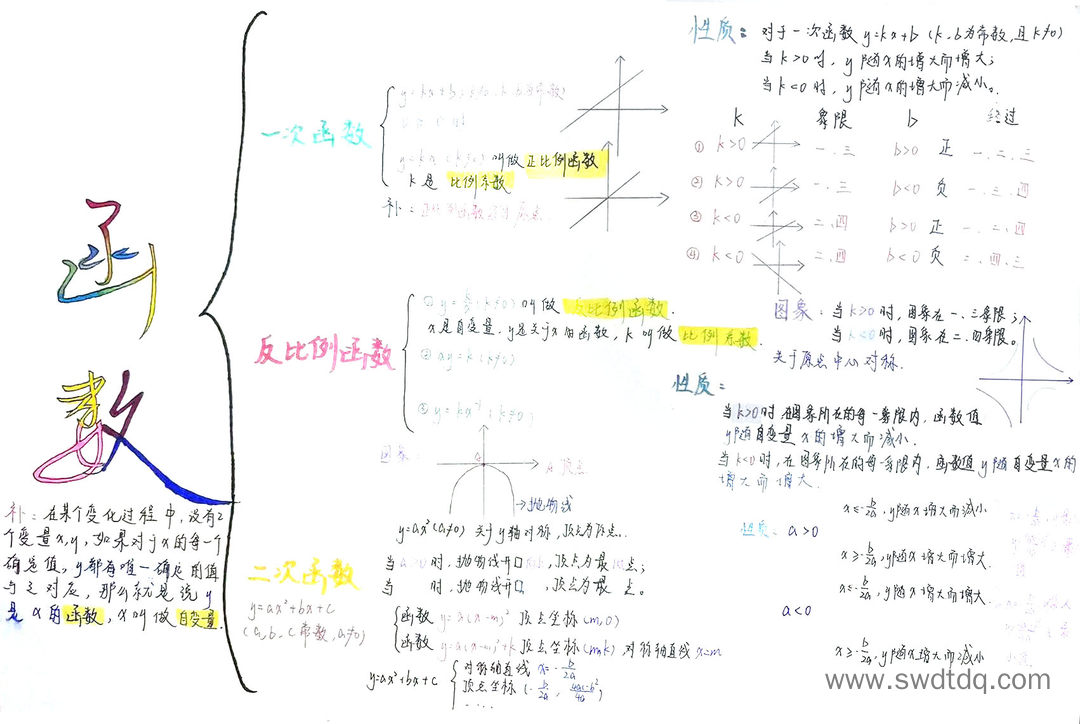 函数
补：在某个变化过程中，设有2
个变量x,y，如果对于x的每一个
确定值，y都有唯一确定的值
与之对应，那么就是说y
是x的函数，x叫做自变量.
一次函数
y=kx+b
y=kx (k≠0) 叫做正比例函数
k是 比例系数
性质：对于一次函数 y=kx+b (k、b为常数，且k≠0)
当k>0时，y随x的增大而增大；
当k<0时，y随x的增大而减小。
k 象限 b 经过
① k>0 一、三 b>0 正 一、二、三
② k>0 一、三 b<0 负 一、三、四
③ k<0 二、四 b>0 正 一、二、四
④ k<0 二、四 b<0 负 二、四、三
反比例函数
叫做 反比例函数.
x是自变量，y是关于x的函数，k叫做 比例系数.
② xy=k (k≠0)
图象：当k>0时，图象在一、三象限；
当k<0时，图象在二、四象限。
关于原点中心对称.
性质：
当k>0时在图象所在的每一象限内，函数值
y随自变量x的增大而减小.
当k<0时，在图象所在的每一象限内，函数值y随自变量x的
增大而增大.
二次函数
y=ax²+bx+c
(a,b,c常数，a≠0)
图象：
顶点
→抛物线
y=ax²(a≠0) 关于y轴对称，顶点为原点..
当a>0时，抛物线开口，顶点为最点；
当 时，抛物线开口，顶点为最 点。
函数 顶点坐标 (m,0)
函数 y=a(x-m)²+k 顶点坐标 (m,k)，对称轴直线x=m
y=ax²+bx+c
对称轴直线 x=-b/2a
顶点坐标 (-b/2a , 4ac-b²/4a)
.....
性质：a>0
x≤-b/2a，y随x增大而减小
x≥-b/2a，y随x增大而增大.
a<0
x≤-b/2a，y随x增大而增大.
x≥-b/2a，y随x增大而减小
www.swdtdq.com